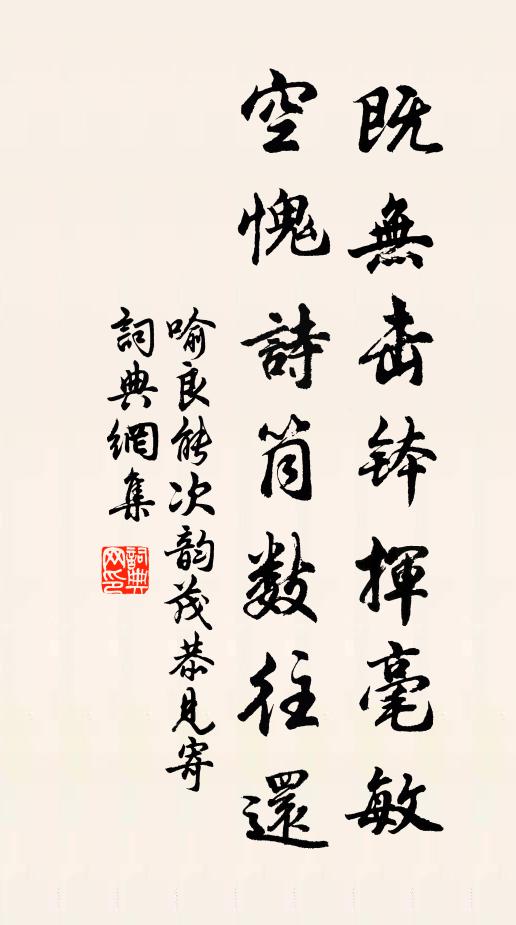 既無击钵揮毫敏
空愧詩筒数往還
喻良能次韵茂恭見寄
詞典網集
詞典
网印